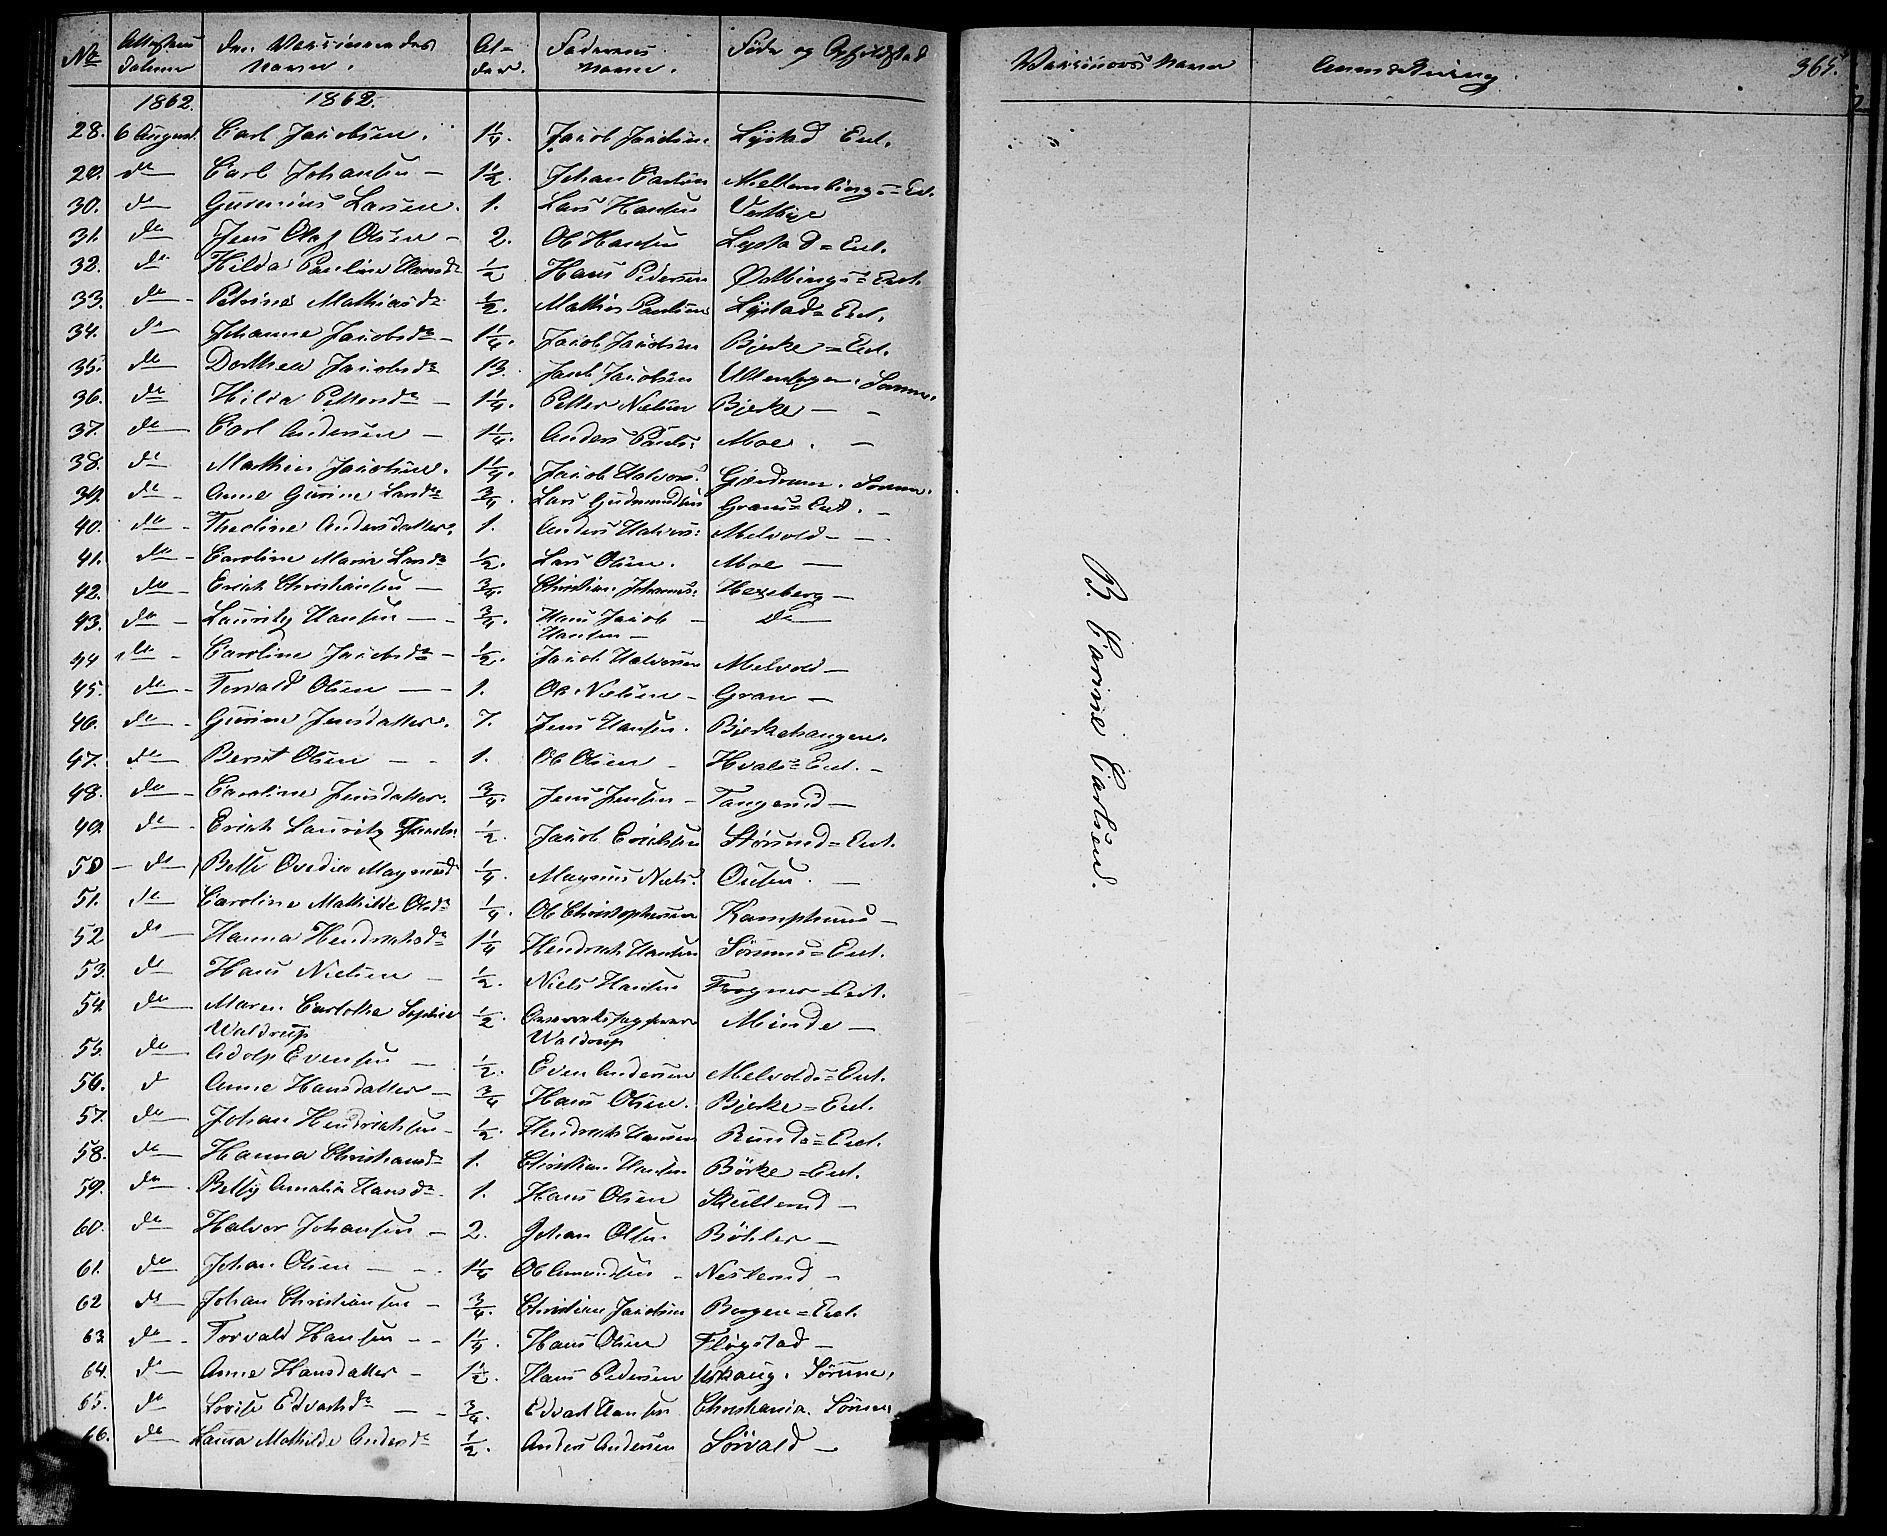 No Attestens Datum Den Vaksineredes Navn. Alder. Faderens Navn. Føde og Opholdsted
1862. 1862.
28. 6 August Carl Jacobsen. 1 1/4. Jacob Jacobsen. Lystad Eiet.
29. do Carl Johansen — 1 1/2. Johan Carlsen Mellembings=Ei.
30. do Gunerius Larsen. 1. Lars Hansen Vestbye
31. do Jens Olaf Olsen — 2. Ole Hansen Lystad=Eiet.
32. do Hilda Pauline Hansdr 1/2 Hans Pedersen Østbings=Eiet.
33. do Petrine Mathiasdr 1/2. Mathias Paulsen Lystad=Eiet.
34. do Johanne Jacobsdr — 1 1/4. Jacob Jacobsen Bjerke=Eiet.
35. do Dorthea Jacobsdr 13. Jacob Jacobsen Ullensager. Sørum.
36. do Hilda Pettersdr — 1 1/4. Petter Nielsen Bjerke — —
37. do Carl Andersen — 1 1/4. Anders Pauls: Moe. —
38. do Mathias Jacobsen. 1 1/4. Jacob Halvors. Gjerdrum. Sørum.
39. do Anne Gurine Larsdr 3/4. Lars Gudmundsen Grans=Eiet. —
40. do Theoline Andersdatter. 1. Anders Halvors: Melvold — —
41. do Caroline Marie Larsdr 1/2. Lars Olsen. Moe —
42. do Erich Christiansen — 3/4. Christian Johannes: Hexeberg —
43. do Lauritz Hansen — — 3/4. Hans Jacob — do
Hansen —
44 do Caroline Jacobsdr — 1/2. Jacob Halvorsen Melvold —
45. do Torvald Olsen — — 1. Ole Nielsen — Gran —
46. do Gurine Jensdatter. 7. Jens Hansen. Bjerkehangen.
47. do Bernt Olsen — — 1. Ole Olsen — Hvals=Eiet. —
48. do Caroline Jensdatter. 3/4. Jens Jensen — Tangerud —
49. do Erich Lauritz Jacobs. 1/2. Jacob Erichsen Størsrud=Eiet.
50 — do Betse Ovedia Magnusd 1/4. Magnus Niels. Ousen. —
51. do Caroline Mathilde Olsdr 1/4. Ole Christophersen Kamphuus —
52 do Hanna Hendrichsdr 1 1/4 Hendrich Hansen Sørums=Eiet.
53. do Hans Nielsen — 1/2. Niels Hansen Frogner=Eiet.
54. do Maren Carlotha Sophie 1/2 Waldrup Minde —
Waldrup
55. do Adolf Evensen — 1/2. Even Andersen Melvolds=Eiet.
56. d Anne Hansdatter — 3/4 Hans Olsen. Bjerke=Eiet.
57. do Johan Hendrichsen — 1/2. Hendrich Hansen Runds=Eiet.
58. do Hanna Christiansdr 1. Christian Hansen Børke=Eiet.
59. do Betsy Amalia Hansdr. 1. Hans Olsen Skullerud —
60. do Halvor Johansen — 2. Johan Olsen Bøhler —
61. do Johan Olsen — — 1 1/4 Ole Amundsen — Neslerud —
62 do Johan Christiansen — 3/4. Christian Jacobsen Borgen=Eiet.
63 do Torvald Hansen — — 1 1/4. Hans Olsen Fløgstad —
64. do Anne Hansdatter — 1 1/2. Hans Pedersen Urhaug. Sørum.
65. do Lovise Edvardsdr — — 3/4. Edvard Hansen Christiania. Sørum.
66. do Laura Mathilde Andersdr 1/2. Anders Andersen Sørvald —
Vaksinørs Navn Anmærkning. 365.
B. Carine Carlsen.